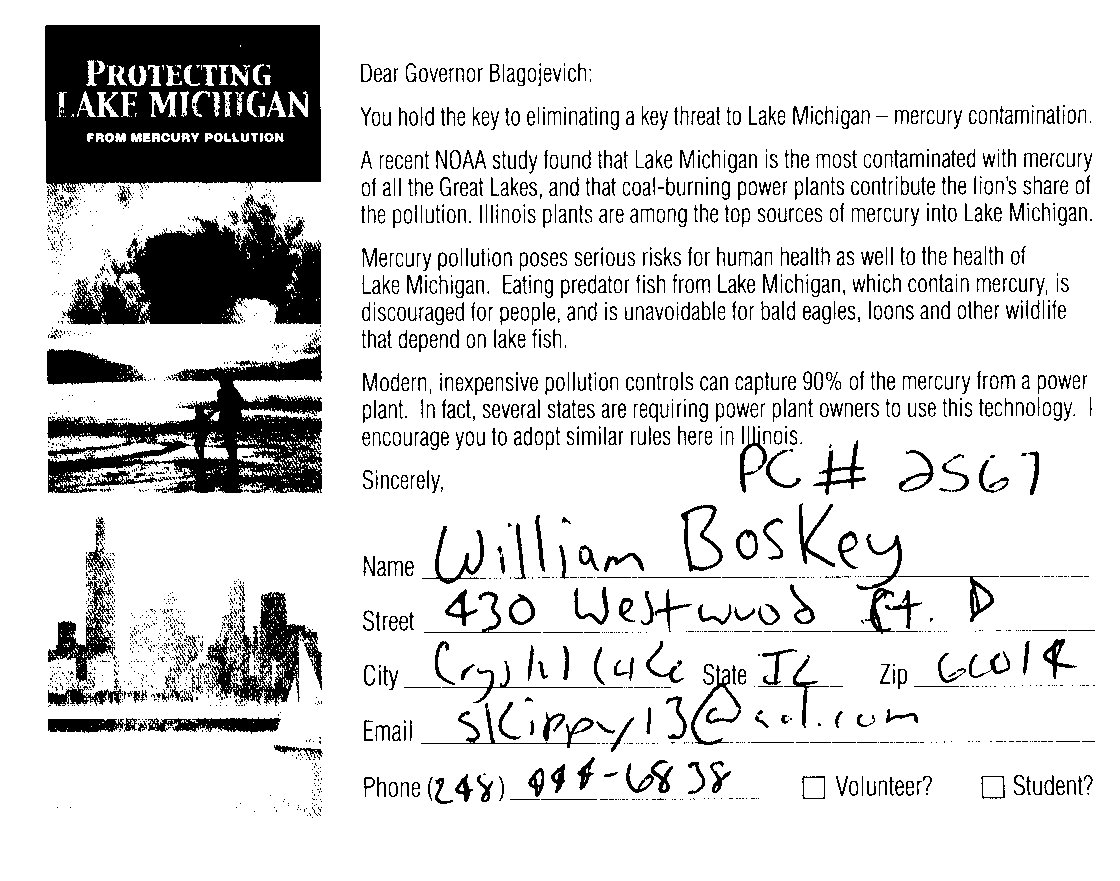 PROTECTING
LAKE MICHIGAN
FROM MERCURY POLLUTION
Dear Governor Blagojevich:
You hold the key to eliminating a key threat to Lake Michigan – mercury contamination.
A recent NOAA study found that Lake Michigan is the most contaminated with mercury
of all the Great Lakes, and that coal-burning power plants contribute the lion's share of
the pollution. Illinois plants are among the top sources of mercury into Lake Michigan.
Mercury pollution poses serious risks for human health as well to the health of
Lake Michigan. Eating predator fish from Lake Michigan, which contain mercury, is
discouraged for people, and is unavoidable for bald eagles, loons and other wildlife
that depend on lake fish.
Modern, inexpensive pollution controls can capture 90% of the mercury from a power
plant. In fact, several states are requiring power plant owners to use this technology. I
encourage you to adopt similar rules here in Illinois.
Sincerely,
PC # 2567
Name William Boskey
Street 430 Westwood D
City Crystal Lake State IL Zip 60014
Email skippy13@aol.com
Phone (248) 444-6838
Volunteer?
Student?